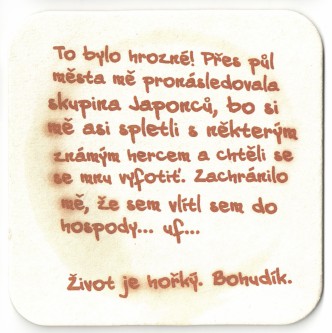 To bylo hrozné! Přes půl
města mě pronásledovala
skupina Japonců, bo si
mě asi spletli s některým
známým hercem a chtěli se
se mnu vyfotiť. Zachránilo
mě, že sem vlítl sem do
hospody... uf...
Život je hořký. Bohudík.